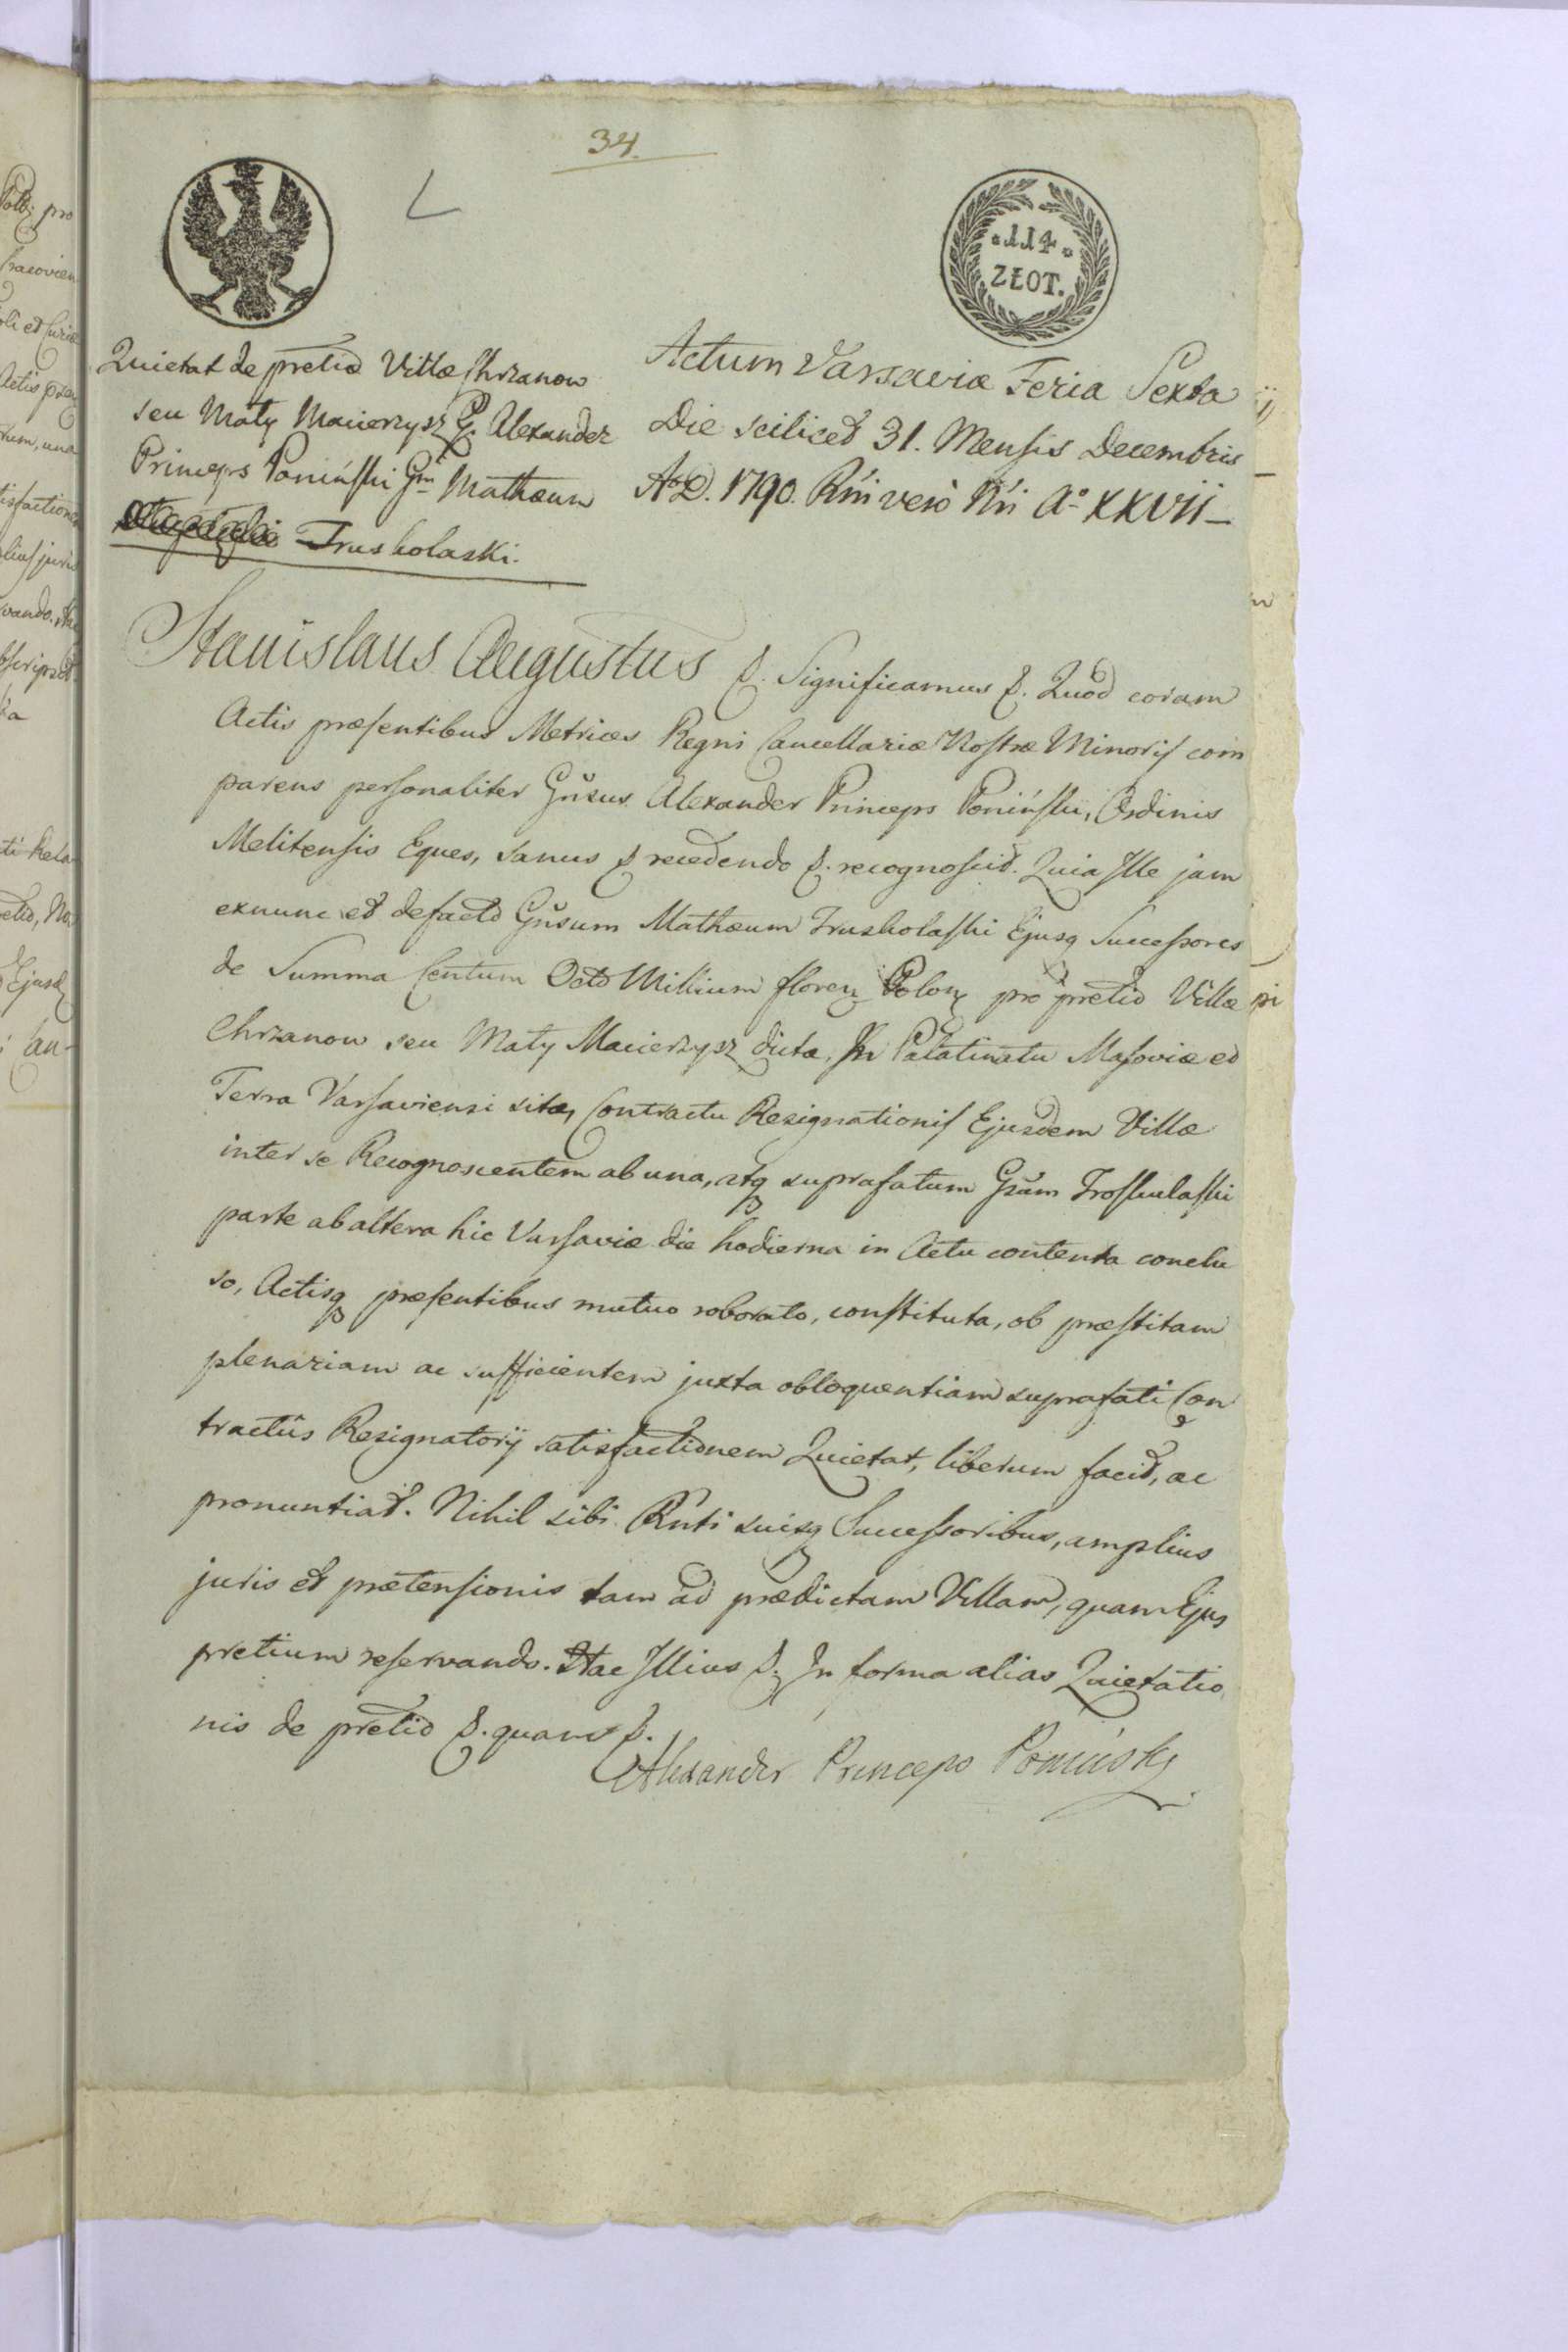 34.
.114.
ZŁOT.
Quietat de pretio Villæ Chrzanow
seu Mały Macierzysz G. Alexander
Princeps Poniński Gm Mathæum
Truskolaski.
Actum Varsaviæ Feria Sexta
Die scilicet 31. Mensis Decembris
AoD. 1790. Rni vero Nri Ao XXVII
Stanislaus Augustus &. Significamus &. Quod coram
Actis præsentibus Metrices Regni Cancellariæ Nostræ Minoris com
parens personaliter Gnsus Alexander Princeps Poniński, Ordinis
Melitensis Eques, sanus & recedendo &. recognoscit. Quia Ille jam
exnunc et defacto Gnsum Mathæum Truskolaski Ejusq Successores
de Summa Centum Octo Millium floren Polon pro pretio Villæ
Chrzanow seu Mały Macierzysz dictæ, In Palatinatu Masoviæ et
Terra Varsaviensi sitæ, Contractu Resignationis Ejusdem Villæ
inter se Recognoscentem ab una, atq suprafatum Gsum Troskulaski
parte ab altera hic Varsaviæ die hodierna in Actu contenta conclu
so, Actisq præsentibus mutuo roborato, constituta, ob præstitam
plenariam ac sufficientem juxta obloquentiam suprafati Con
tractûs Resignatorij satisfactionem Quietat, liberum facit, ac
pronuntiat. Nihil sibi Rnti suisq Successoribus, amplius
juris et prætensionis tam ad prædictam Villam, quam Ejus
pretium reservando. Hac Illius &. In forma alias Quietatio
nis de pretio &. quam &.
Alexander Princeps Poninsky